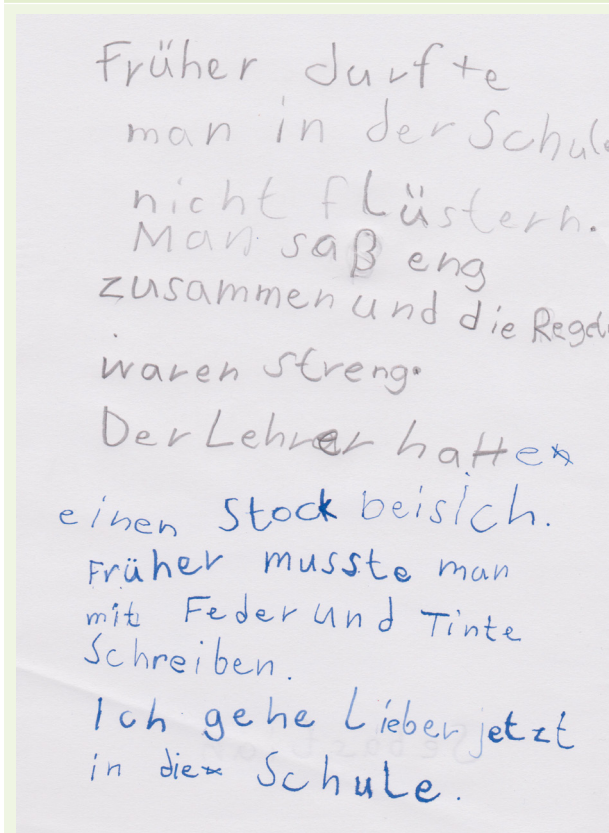 Früher durfte
man in der Schule
nicht flüstern.
Man saß eng
zusammen und die Regeln
waren streng.
Der Lehrer hatte
einen Stock bei sich.
Früher musste man
mit Feder und Tinte
Schreiben.
Ich gehe Lieber jetzt
in die Schule.